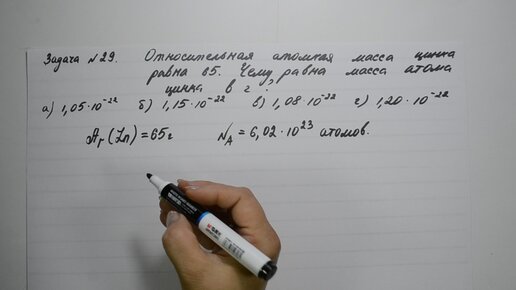 Задача №29. Относительная атомная масса цинка
равна 65. Чему равна масса атома
цинка в г:
а) 1,05·10⁻²² б) 1,15·10⁻²² в) 1,08·10⁻²² г) 1,20·10⁻²²
Ar(Zn)=65г NA=6,02·10²³ атомов.